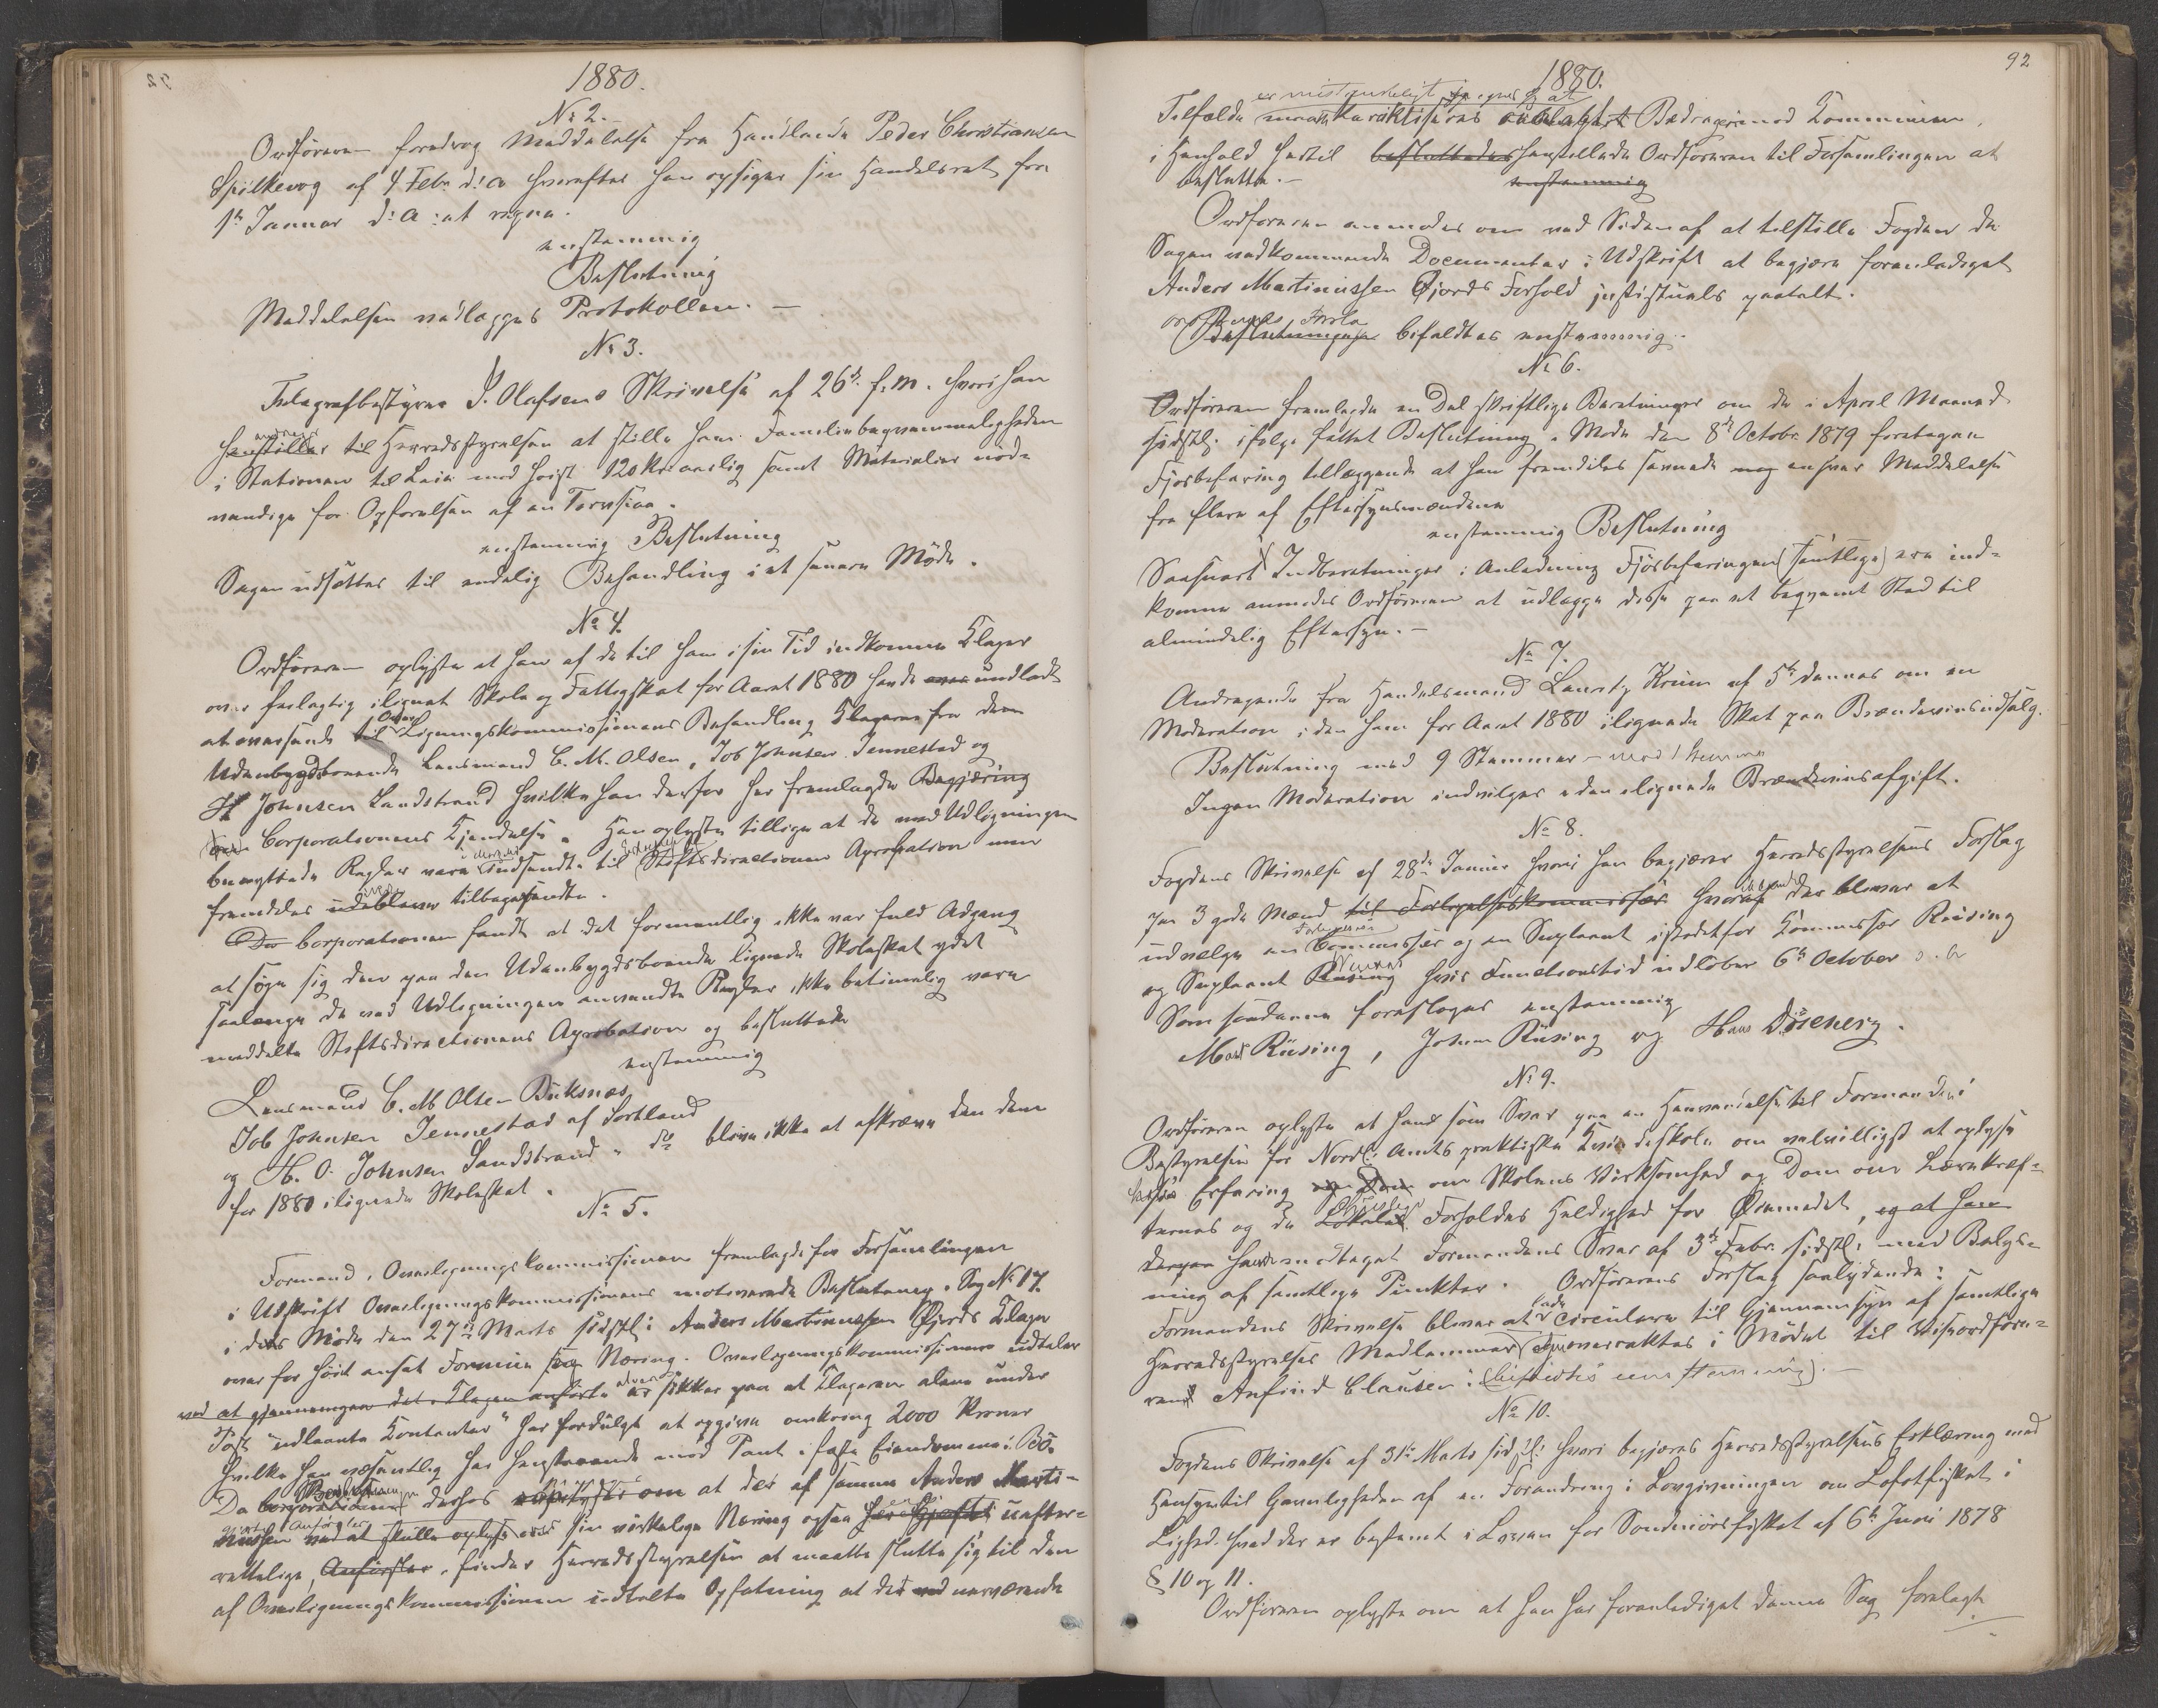 1880.
No 2.
Ordføreren foredrog Meddelelse fra Handlende Peder Christiansen
Spilkevog af 4 Febr d: a hvorefter han opsiger sin Handelsret fra
1te Januar d: a: at regne.
enstemmig
Beslutning
Meddelelsen vedlægges Protokollen. —
No 3.
Telegrafbestyrer J. Olafsens Skrivelse af 26de f. m. hvori han
henstiller til Herredsstyrelsen at stille ham Familiebeqvemmeligheden
i Stationen til Leie mod høist 120 Kr aarlig samt Materialier nød-
vendige for Opførelsen af en
enstemmig Beslutning
Sagen udsættes til endelig Behandling i et senere Møde.
No 4.
Ordføreren oplyste at han af de til ham i sin Tid indkomne Klager
over feilagtig ilignet Skole og Fattigskat for Aaret 1880 havde undladt
at oversende til Ligningskommissionens Behandling Klagerne fra de
Udenbygdsboende Lensmand C. M. Olsen, Job Johnsen Jennestad og
H Johnsen Sandstrand hvilke han derfor her fremlagde Begjæring
Corporationens Kjendelse. Han oplyste tillige at de ved Udligningen
benyttede Regler vare indsendte til Stiftsdirectionens Aprobation men
fremdeles tilbagesendte.
Corporationen fandt at det formentlig ikke var fuld Adgang
at søge sig den paa den Udenbygdsboende lignede Skoleskat ydet
saalænge de ved Udligningen anvendte Regler ikke betimelig vare
meddelte Stiftsdirectionens Aprobation og besluttede
enstemmig
Lensmand C. M Olsen Buksnæs
Job Johnsen Jennestad af Sortland
og H. O. Johnsen Sandstrand " do blive ikke at afkræve den dem
for 1880 ilignede Skoleskat.
No 5.
Formand i Overligningskommissionen fremlagde for Forsamlingen
i Udskrift Overligningskommissionens motiverede Beslutning i Sag No 17.
i dens Møde den 27de Marts sidstl: Anders Martinussen Øjords Klage
over for høit ansat Formue og Næring. Overligningskommissionen udtaler
ved at gjennemgaa det i Klagen anførte er sikker paa at Klageren alene under
Post "udlaante Contanter" har fordulgt at opgive omkring 2000 Kroner
hvilke han væsentlig har henstaaende mod Pant i faste Eiendomme i Bø.
Da Corporationen derhos om at der af samme Anders Marti-
nussen ved at skulle oplyse sin virkelige Næring ogsaa uefter-
rettelige Anførsler, finder Herredsstyrelsen at maatte slutte sig til den
af Overligningskommissionen udtalte Opfatning at det nærværende
92
1880.
Tilfælde Bedrageri mod Kommunen,
i Henhold hertil besluttedes henstillede Ordføreren til Forsamlingen at
beslutte. —
enstemmig
Ordføreren anmodes om ved Siden af at tilstille Fogden de
Sagen vedkommende Documenter i Udskrift at begjære foranlediget
Anders Martinussen Øjords Forhold justitsielt paatalt.
bifaldtes enstemmig.
No 6.
Ordføreren fremlagde en Del skriftlige Beretninger om de i April Maaned
sidstl: ifølge fattet Beslutning i Møde den 8de Octobr 1879 foretagne
Fjøsbefaring tillæggende at han fremdeles savnede enhver Meddelelse
fra flere af Eftersynsmændene
enstemmig Beslutning
Saasnart Indberetninger i Anledning Fjøsbefaringen (samtlige) ere ind-
komne anmodes Ordføreren at udlægge disse paa et beqvemt Sted til
almindelig Eftersyn. —
No 7.
Andragende fra Handelsmand Lauritz Krüm af 5te dennes om en
Moderation i den ham for Aaret 1880 ilignede Skat paa Brændevinsudsalg.
Beslutning med 9 Stemmer — mod 1 Stemme
Ingen Moderation indvilges i den ilignede Brændevinsafgift.
No 8.
Fogdens Skrivelse af 28de Januar hvori han begjærer Herredsstyrelsens Forslag
paa 3 gode Mænd til Forligelseskommissær hvoraf der bliver at
udvælge en Commissær og en Supleant istedetfor Kommissær Reusing
og Supleant hvis Functionstid udløber 6te October d. A
Som saadanne foresloges enstemmig
Rüsing, Johan Rüsing og Hans
No 9.
Ordføreren oplyste at han som Svar paa en Henvendelse til Formanden i
Bestyrelsen for Nordl: Amts praktiske Kvindeskole om velvilligst at oplyse
Erfaring om Skolens Virksomhed og Dom om Lærekræf-
ternes og de Forholdes Heldighed for Øiemedet, og at han
derpaa havde modtaget Formandens Svar af 3die Febr. sidstl: med Belys-
ning af samtlige Punkter. Ordførerens Forslag saalydende:
Formandens Skrivelse bliver at circulere til Gjennemsyn af samtlige
Herredsstyrelsens Medlemmer overraktes i Mødet til Viseordføre-
ren Anfind Clausen: (bifaldtes enstemmig). —
No 10.
Fogdens Skrivelse af 31te Marts sidstl: hvori begjæres Herredsstyrelsens Erklæring med
Hensyn til Gavnligheden af en Forandring i Lovgivningen om Lofotfisket i
Lighed hvad der er bestemt i Loven for Søndmørsfisket af 6te Juni 1878
§ 10 og 11.
Ordføreren oplyste om at han har foranlediget denne Sag forelagt